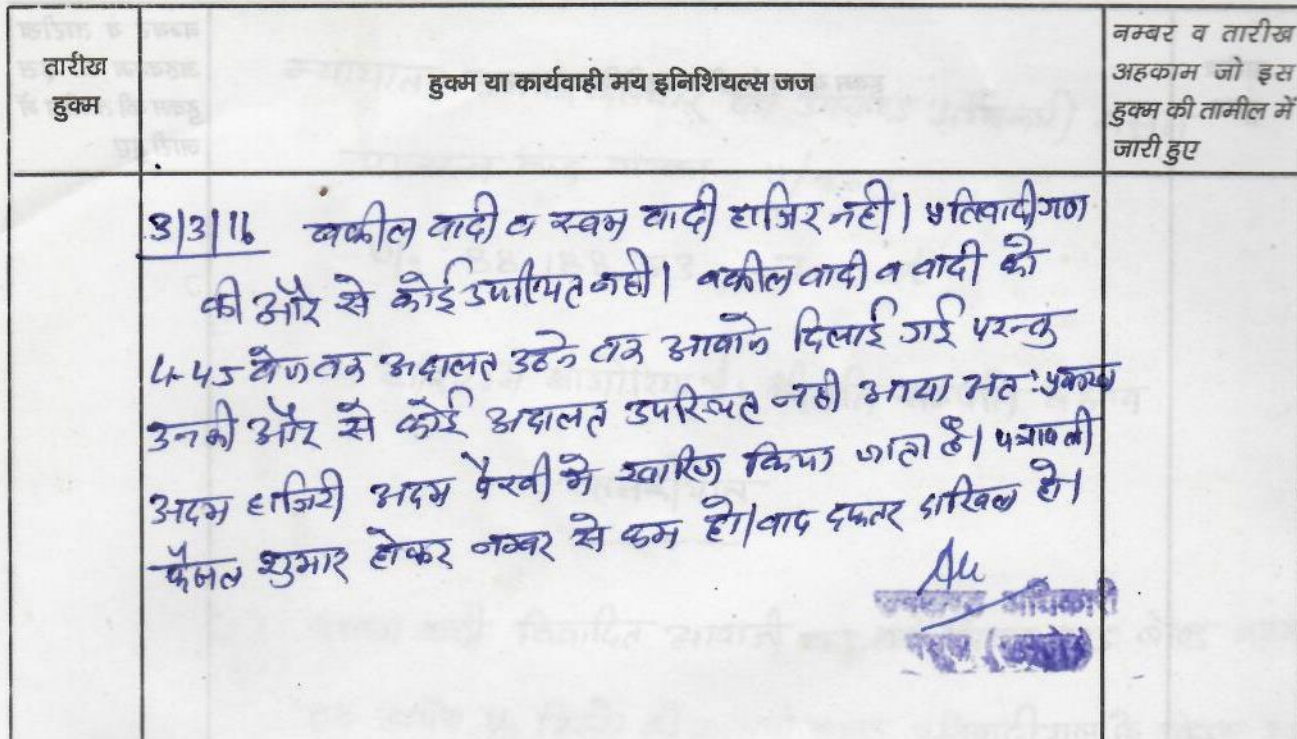 तारीख
हुक्म
हुक्म या कार्यवाही मय इनिशियल्स जज
नम्बर व तारीख
अहकाम जो इस
हुक्म की तामील में
जारी हुए
3/3/16 वकील वादी व स्वयम वादी हाजिर नही। प्रतिवादीगण
की और से कोई उपस्थित नही। वकील वादी व वादी को
4-45 बजे तक अदालत उठने तक आवाजे दिलाई गई परन्तु
उनकी और से कोई अदालत उपस्थित नही आया अतः प्रकरण
अदम हाजिरी अदम पैरवी मे खारिज किया जाता है। पत्रावली
फैसल शुमार होकर नम्बर से कम हो। वाद दफ्तर दाखिल हो।
उपखण्ड अधिकारी